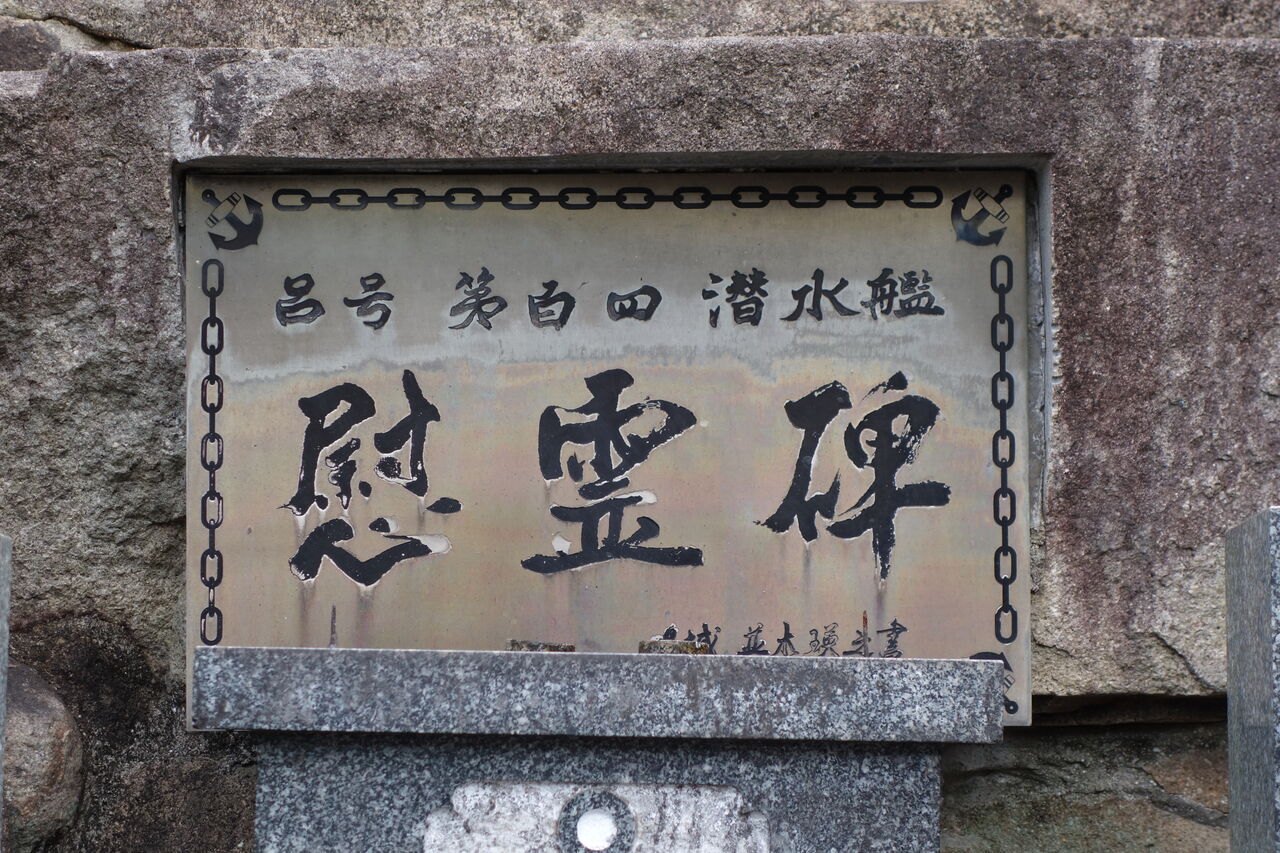 呂号 第百四 潜水艦
慰霊碑
城 並木瑛斗書